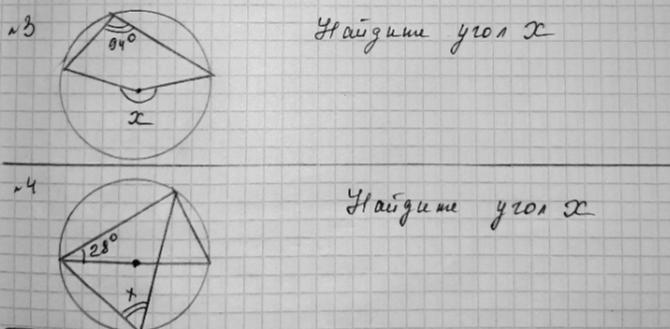 №3
94°
Найдите угол x
x
№4
28°
Найдите угол x
x